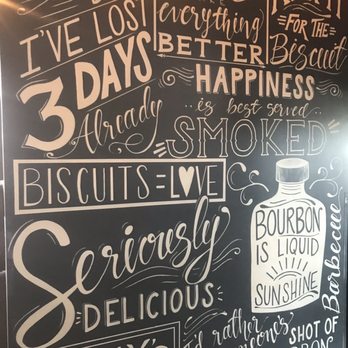 I'VE LOST
3 DAYS
Already
everything
BETTER
FOR THE
Biscuit
HAPPINESS
is best served
SMOKED
BISCUITS = LOVE
Seriously
DELICIOUS
BOURBON
IS LIQUID
SUNSHINE
Barbecue
I'd rather
someone's
SHOT OF